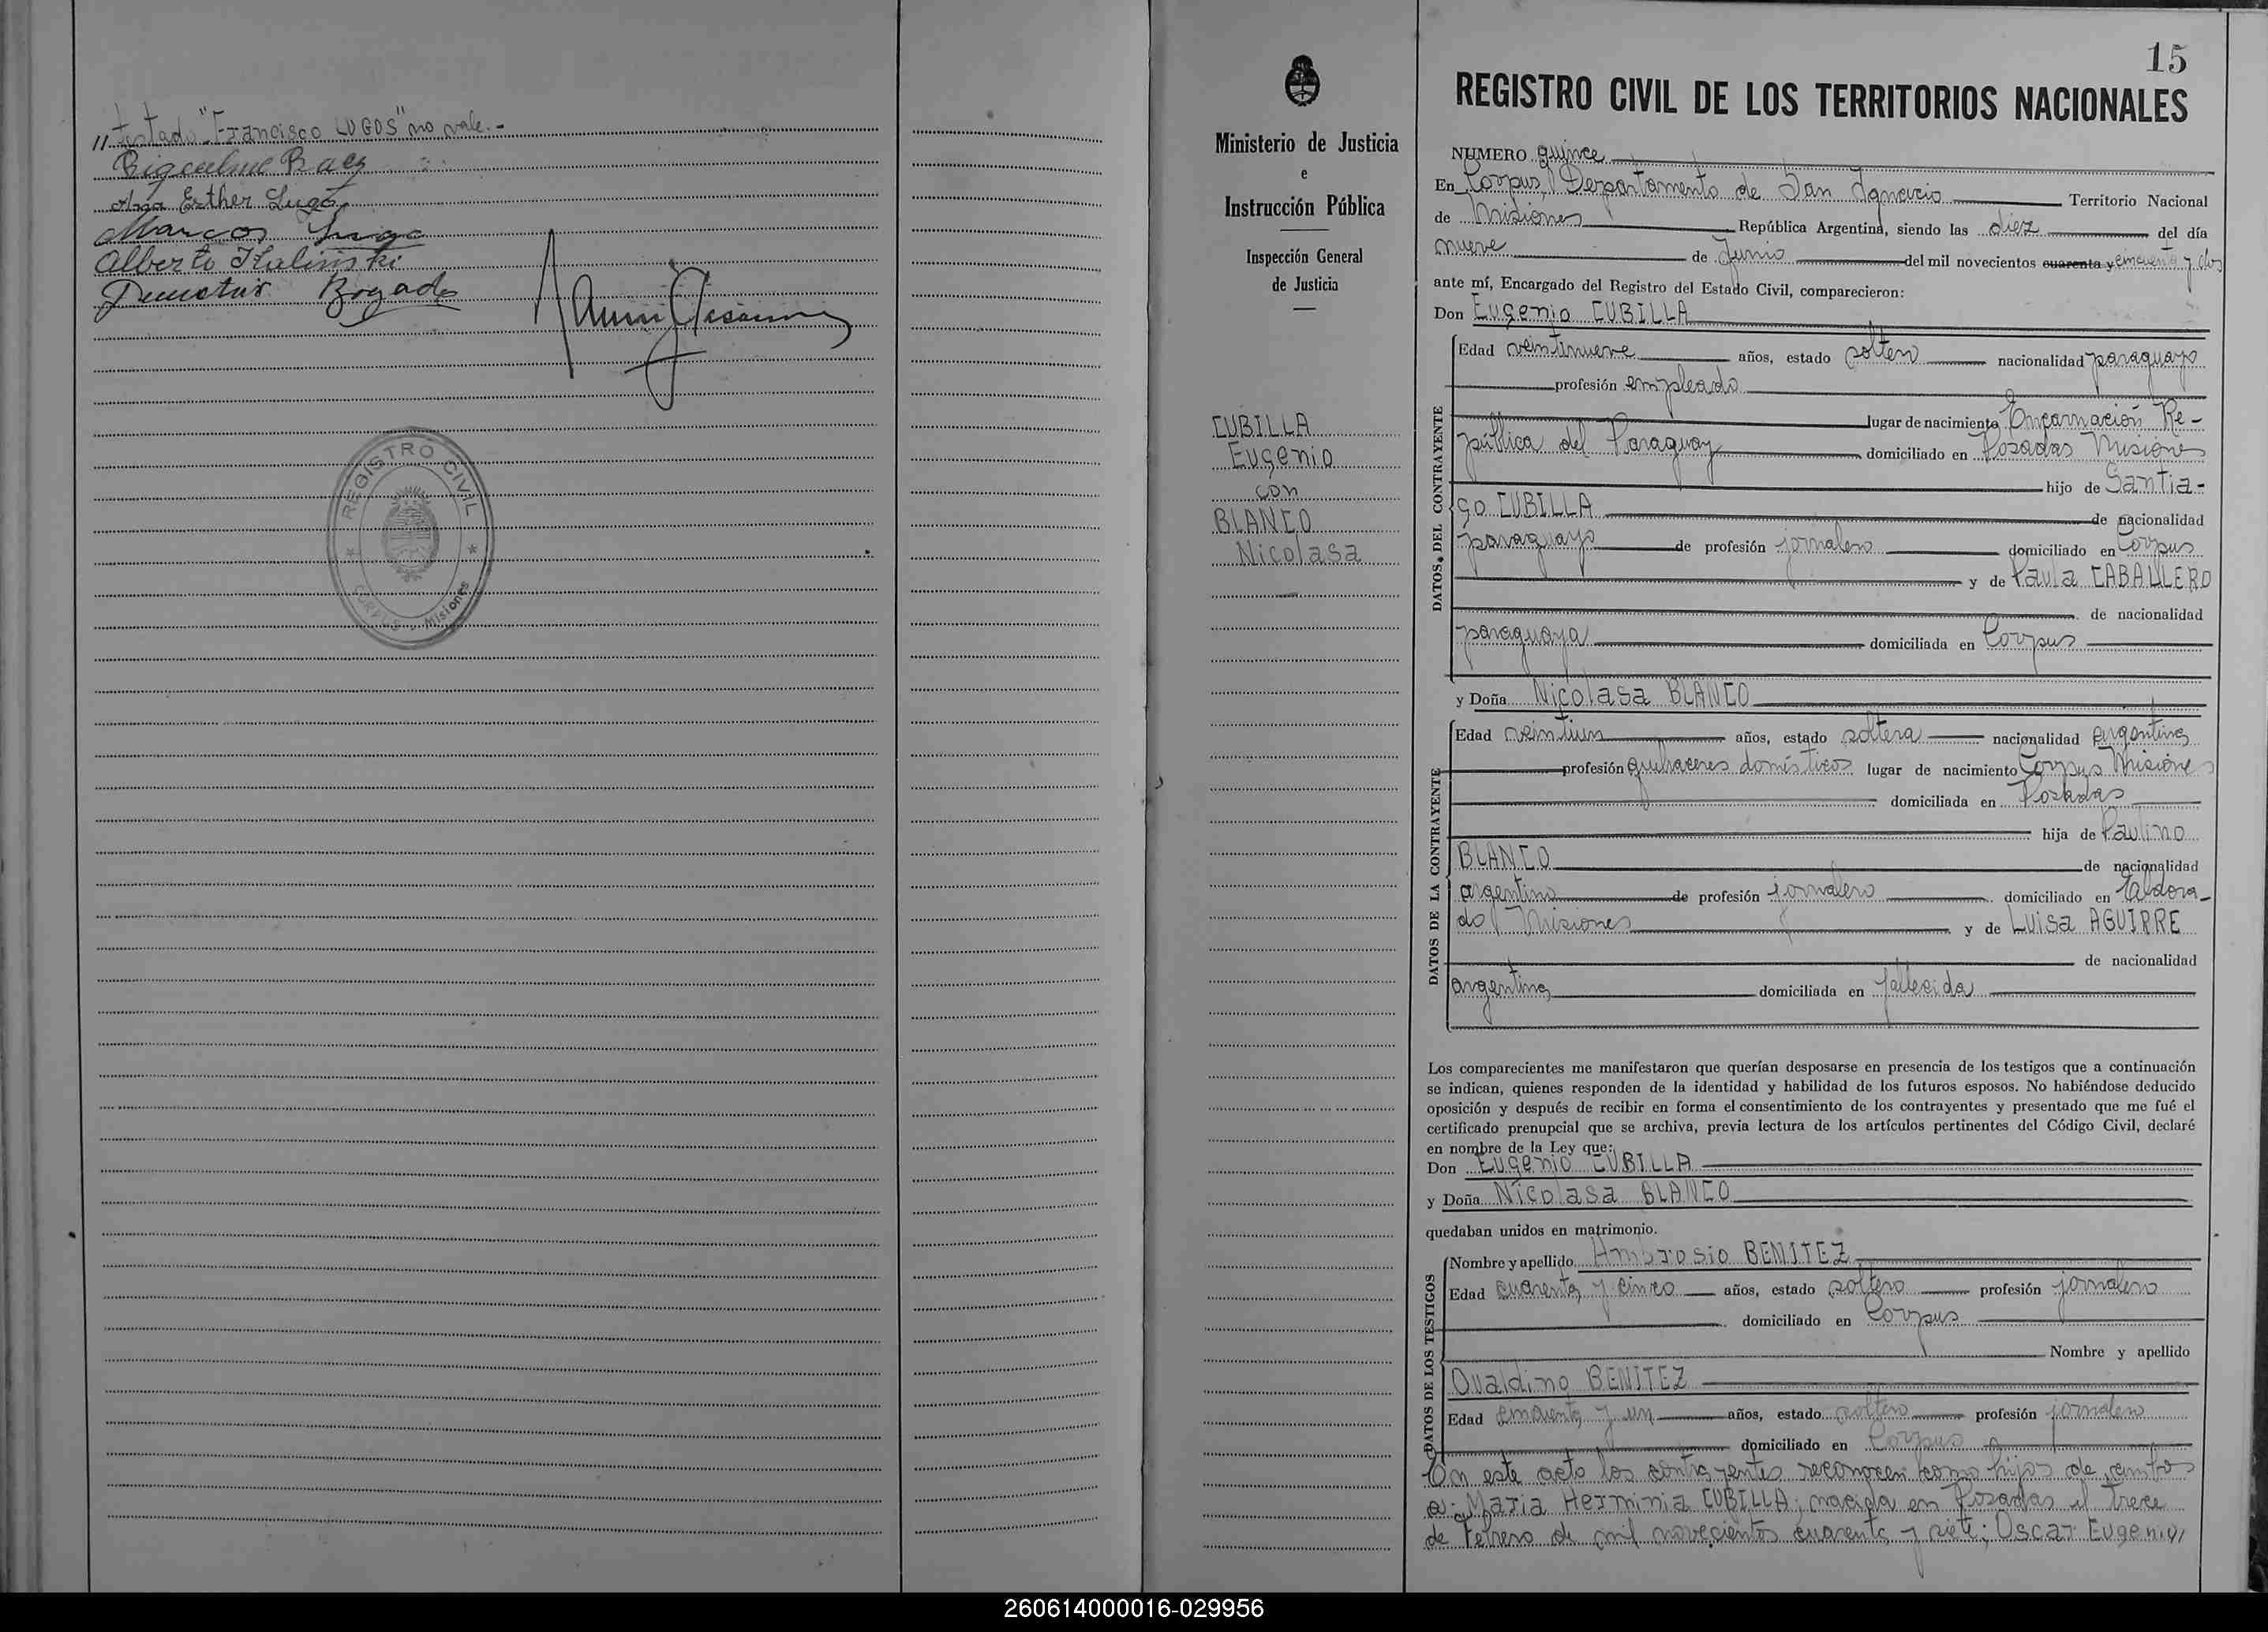 // testado "Francisco LUGOS" no vale.-
Riquelme Baez
Ana Esther Lugo
Marcos Lugo
Alberto Kaliniski
Demetrio Bogado
REGISTRO CIVIL
CORPUS - Misiones
Ministerio de Justicia
e
Instrucción Pública
Inspección General
de Justicia
CUBILLA
Eugenio
con
BLANCO
Nicolasa
15
REGISTRO CIVIL DE LOS TERRITORIOS NACIONALES
NUMERO quince
En Corpus, Departamento de San Ignacio Territorio Nacional
de Misiones República Argentina, siendo las diez del día
nueve de Junio del mil novecientos cuarenta y cincuenta y dos
ante mí, Encargado del Registro del Estado Civil, comparecieron:
Don Eugenio CUBILLA
DATOS DEL CONTRAYENTE
Edad veintinueve años, estado soltero nacionalidad paraguayo
profesión empleado
lugar de nacimiento Encarnación Re-
pública del Paraguay domiciliado en Posadas Misiones
hijo de Santia-
go CUBILLA de nacionalidad
paraguayo de profesión jornalero domiciliado en Corpus
y de Paula CABALLERO
de nacionalidad
paraguaya domiciliada en Corpus
y Doña Nicolasa BLANCO
DATOS DE LA CONTRAYENTE
Edad veintiun años, estado soltera nacionalidad argentina
profesión quehaceres domésticos lugar de nacimiento Corpus Misiones
domiciliada en Posadas
hija de Paulino
BLANCO de nacionalidad
argentino de profesión jornalero domiciliado en Eldora-
do Misiones y de Luisa AGUIRRE
de nacionalidad
argentina domiciliada en fallecida
Los comparecientes me manifestaron que querían desposarse en presencia de los testigos que a continuación
se indican, quienes responden de la identidad y habilidad de los futuros esposos. No habiéndose deducido
oposición y después de recibir en forma el consentimiento de los contrayentes y presentado que me fué el
certificado prenupcial que se archiva, previa lectura de los artículos pertinentes del Código Civil, declaré
en nombre de la Ley que:
Don Eugenio CUBILLA
y Doña Nicolasa BLANCO
quedaban unidos en matrimonio.
DATOS DE LOS TESTIGOS
Nombre y apellido Ambrosio BENITEZ
Edad cuarenta y cinco años, estado soltero profesión jornalero
domiciliado en Corpus
Nombre y apellido
Ovaldino BENITEZ
Edad cincuenta y un años, estado soltero profesión jornalero
domiciliado en Corpus
En este acto los contrayentes reconocen como hijos de ambos
a: Maria Herminia CUBILLA; nacida en Posadas el trece
de Febrero de mil novecientos cuarenta y siete; Oscar Eugenio//
260614000016-029956